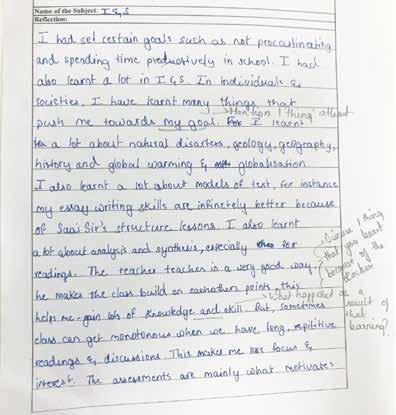 Name of the Subject: I & S
Reflection:
I had set certain goals such as not procrastinating
and spending time productively in school. I had
also learnt a lot in I & S. In individuals &
societies, I have learnt many things that
Mention 1 'thing' atleast
push me towards my goal. I learnt
a lot about natural disasters, geology, geography,
history and global warming & globalisation
I also learnt a lot about models of text, for instance
my essay writing skills are infinetely better because
of Saai Sir's structure lessons. I also learnt
a lot about analysis and synthesis, especially for
readings. The teacher teaches in a very good way,
he makes the class build on eachothers points, this
helps me gain lots of knowledge and skill. But, sometimes
class can get monotonous when we have long, repititive
readings & discussions. This makes me lose focus &
interest. The assessments are mainly what motivates
Discuss 1 thing
that you learnt
because of the
teacher
What happened as a
result of
that
learning?